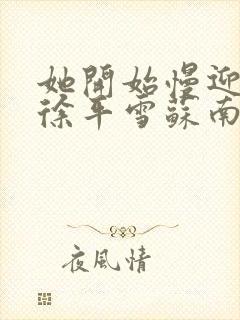 她開始慢迎
徐平雪蘇南
夜風情